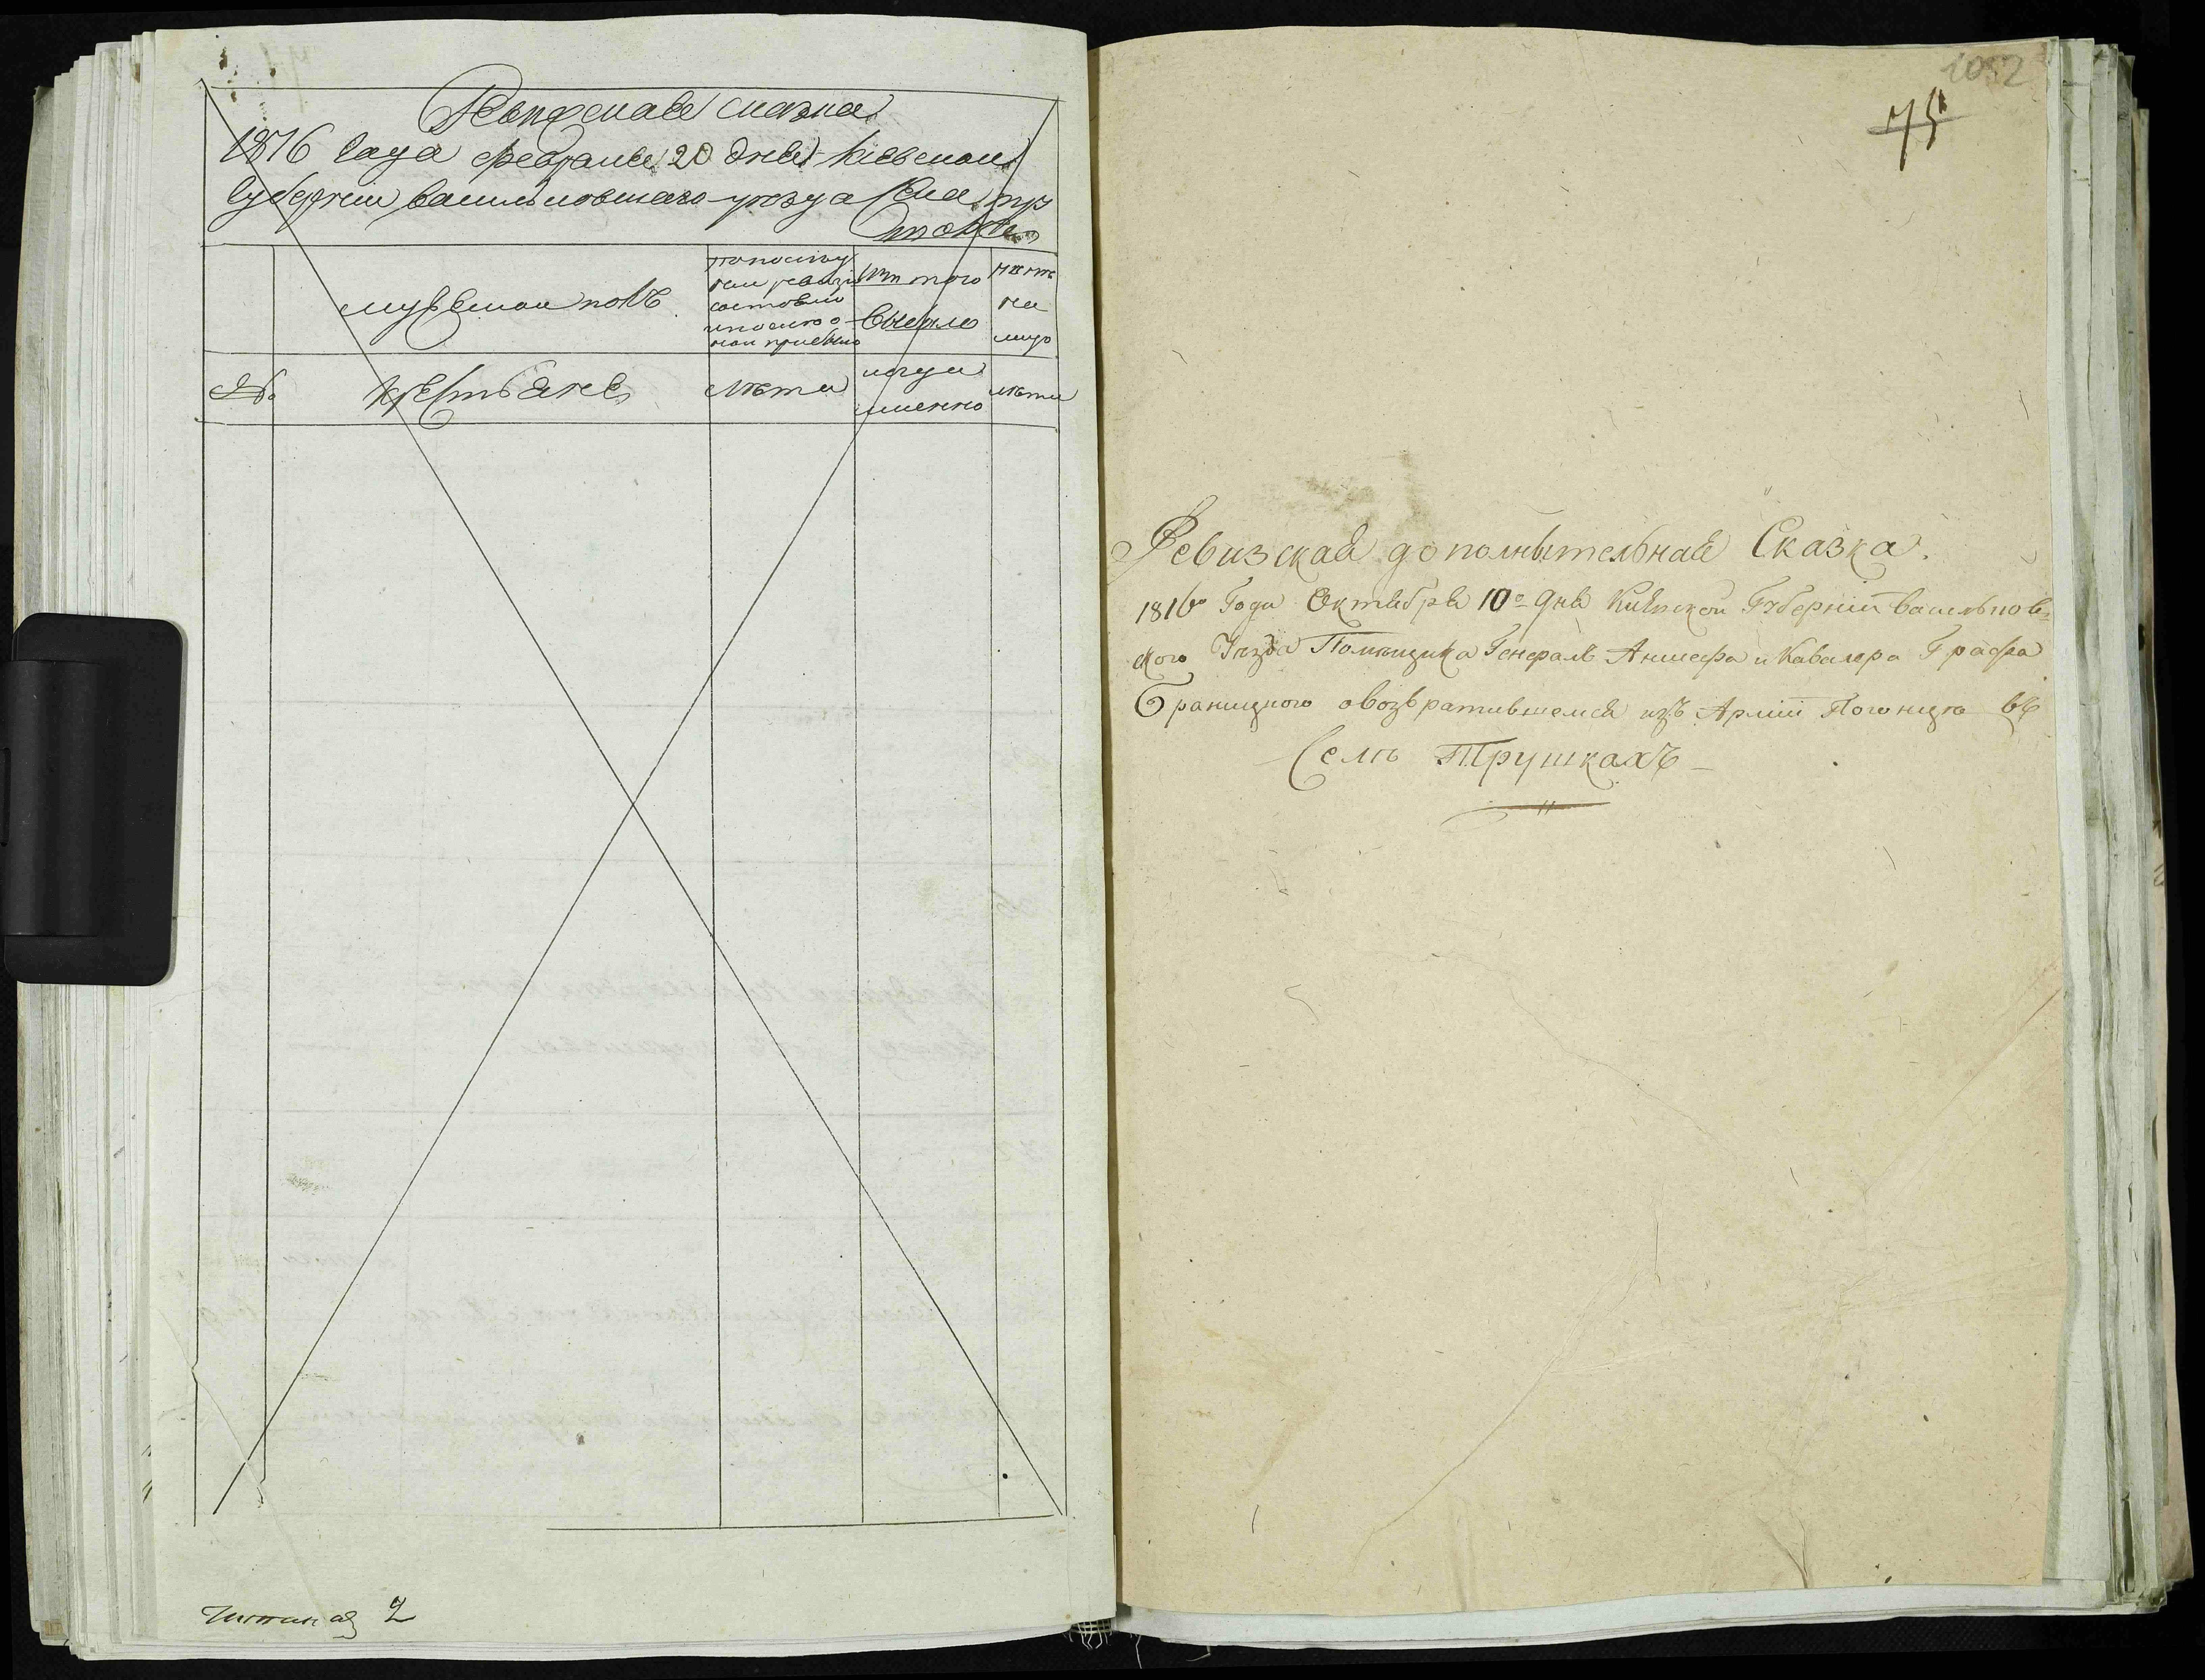 Ревизская сказка
1816 года февраля 20 дня киевской
Губернии васильковскаго уезда села
мужеска полъ
по последней ревизии состояло и после оной прибыло
Изъ того выбыло
Ныне на лицо
№
крестьяне
лета
когда именно
лета
2
1052
75
Ревизская дополнытельная Сказка.
1816го Года Октября 10го дня Киевской Губернии васильков
ского Уезда Помещика Генералъ Аншефа и Кавалера Графа
Браницкого овозвратившемся изъ Армии Погонщке въ
Селе Трушкахъ